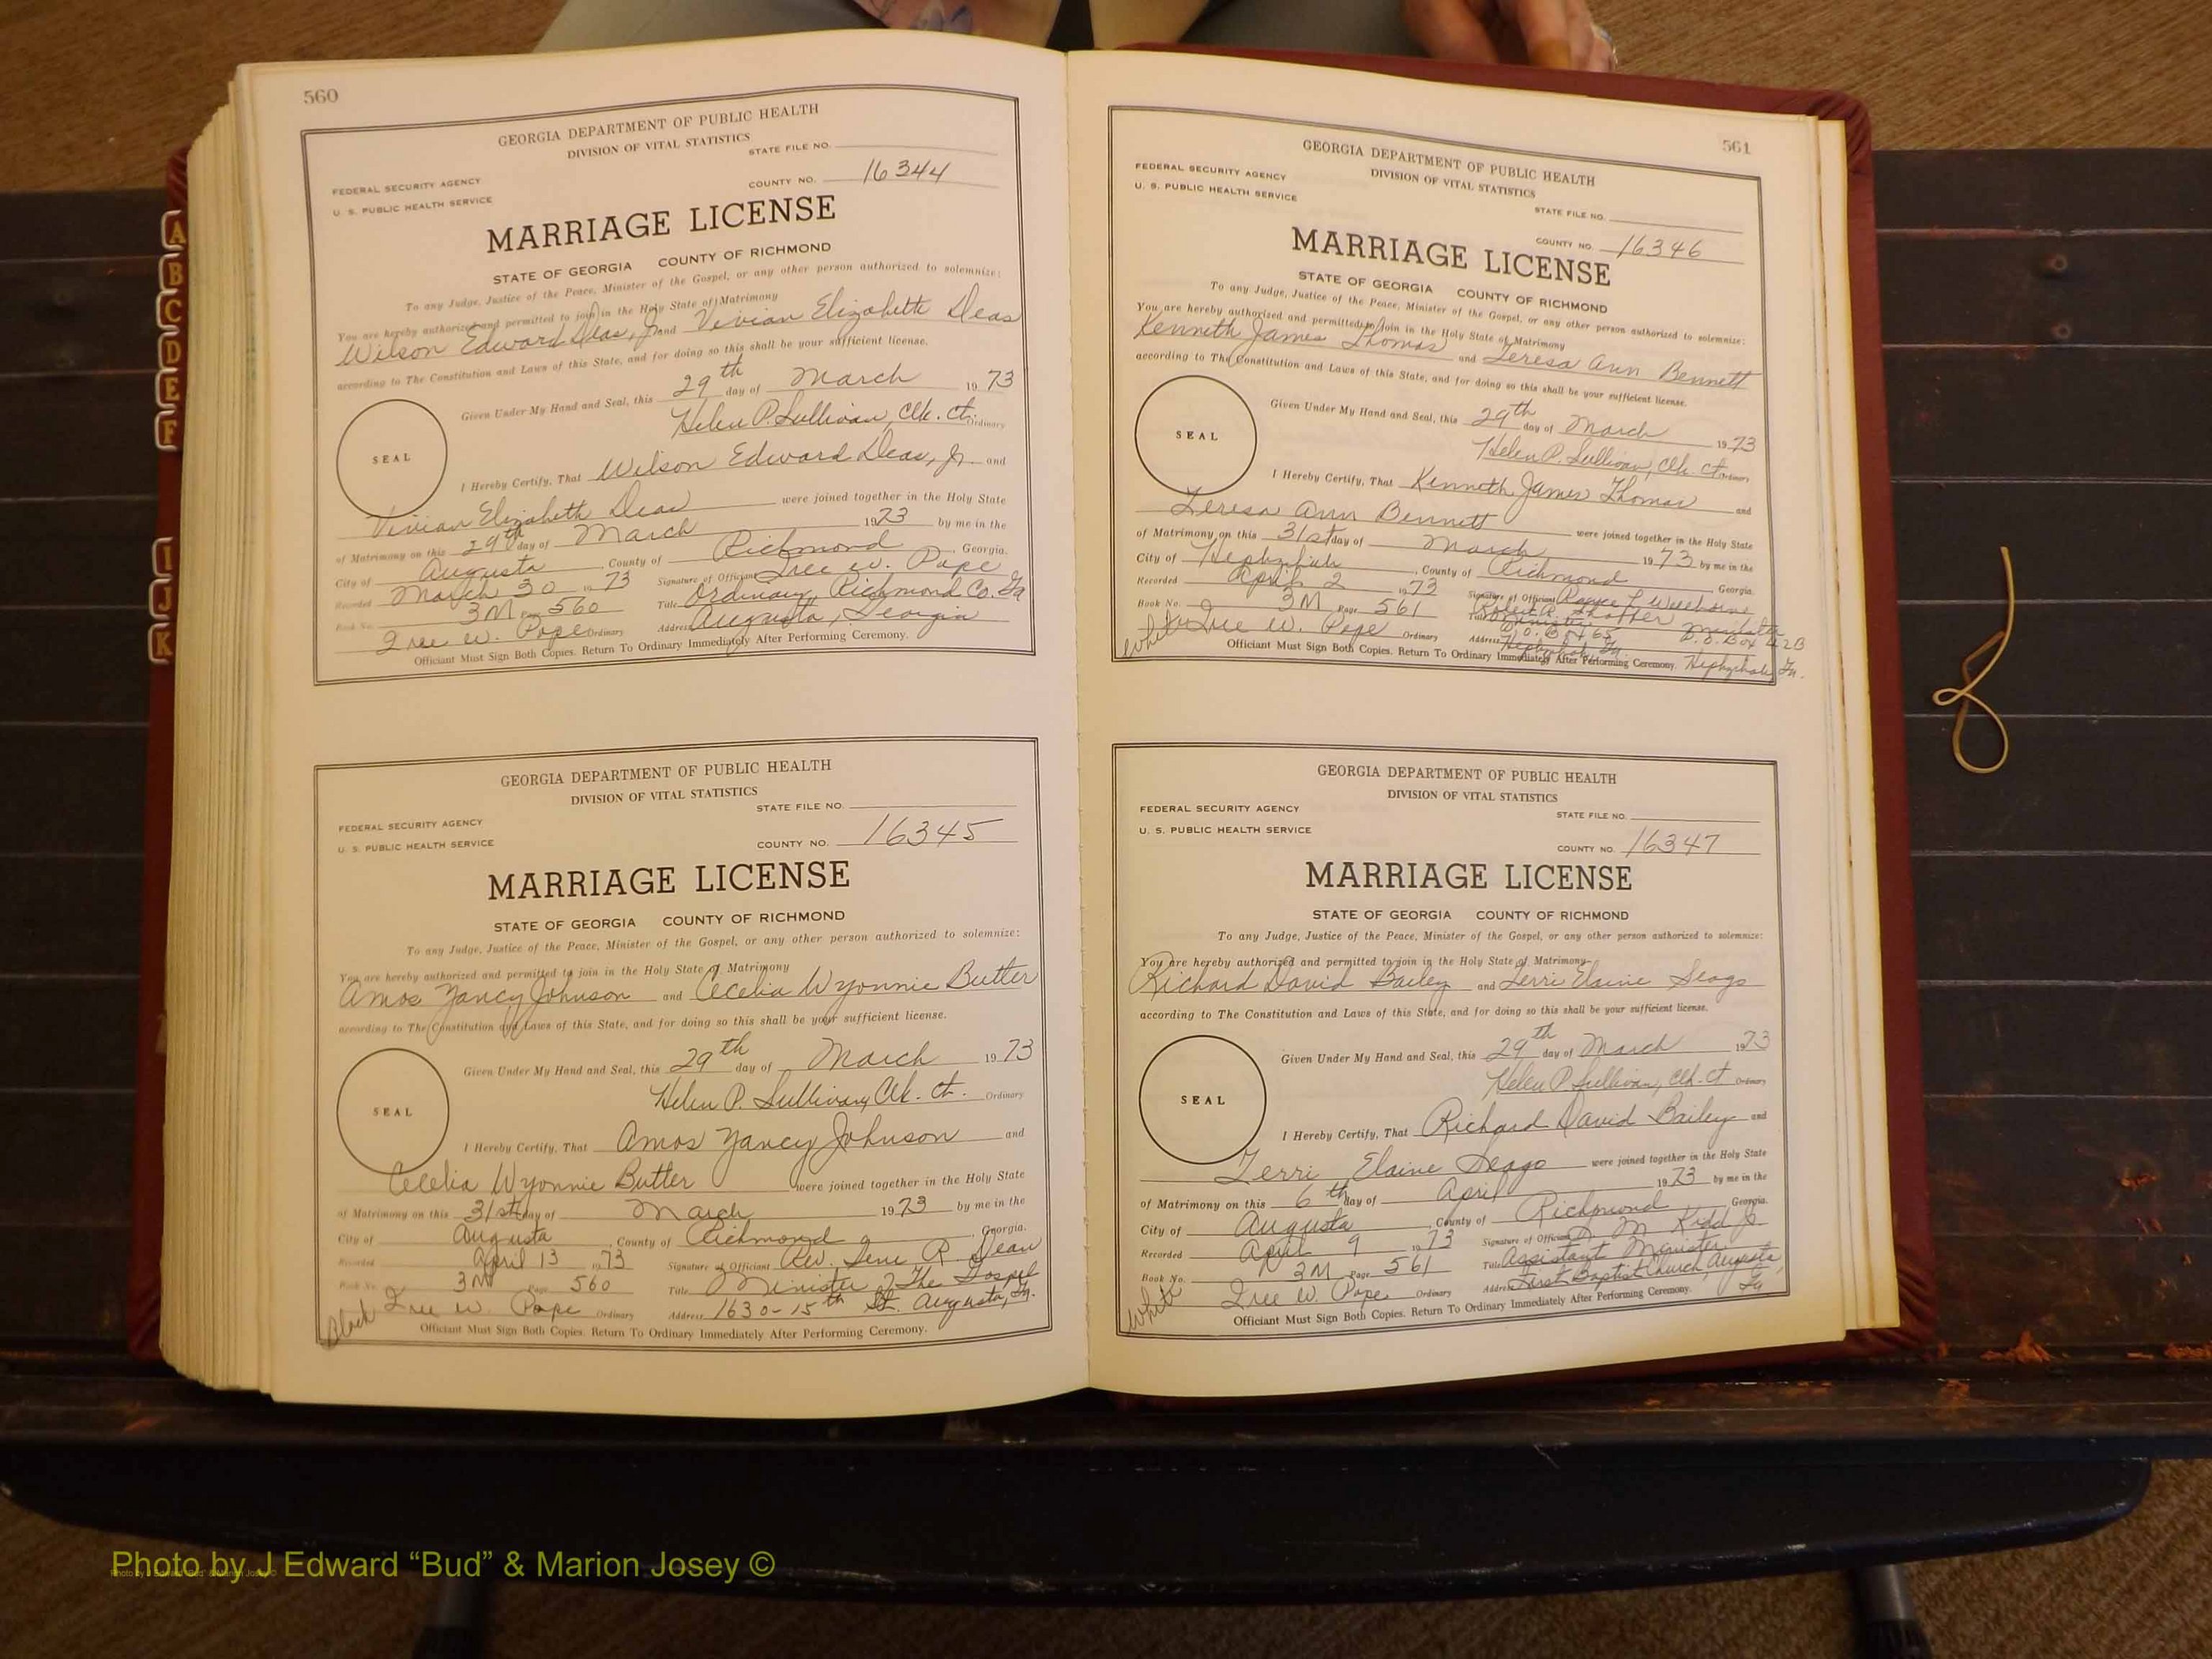 560
GEORGIA DEPARTMENT OF PUBLIC HEALTH
DIVISION OF VITAL STATISTICS
STATE FILE NO.
FEDERAL SECURITY AGENCY
U. S. PUBLIC HEALTH SERVICE
COUNTY NO. 16344
MARRIAGE LICENSE
STATE OF GEORGIA COUNTY OF RICHMOND
To any Judge, Justice of the Peace, Minister of the Gospel, or any other person authorized to solemnize:
You are hereby authorized and permitted to join in the Holy State of Matrimony
Wilson Edward Deas, Jr and Vivian Elizabeth Deas
according to The Constitution and Laws of this State, and for doing so this shall be your sufficient license.
Given Under My Hand and Seal, this 29th day of March 1973
Helen P. Sullivan, Clk. Ct. Ordinary
SEAL
I Hereby Certify, That Wilson Edward Deas, Jr and
Vivian Elizabeth Deas were joined together in the Holy State
of Matrimony on this 29th day of March 1973 by me in the
City of Augusta, County of Richmond, Georgia.
Recorded March 30 1973 Signature of Officiant W. Pope
Book No. 3M Page 560 Title Ordinary, Richmond Co. Ga
W. Pope Ordinary Address Augusta, Georgia
Officiant Must Sign Both Copies. Return To Ordinary Immediately After Performing Ceremony.
GEORGIA DEPARTMENT OF PUBLIC HEALTH
DIVISION OF VITAL STATISTICS
STATE FILE NO.
FEDERAL SECURITY AGENCY
U. S. PUBLIC HEALTH SERVICE
COUNTY NO. 16345
MARRIAGE LICENSE
STATE OF GEORGIA COUNTY OF RICHMOND
To any Judge, Justice of the Peace, Minister of the Gospel, or any other person authorized to solemnize:
You are hereby authorized and permitted to join in the Holy State of Matrimony
Amos Yancy Johnson and Cecelia Wyonnie Butler
according to The Constitution and Laws of this State, and for doing so this shall be your sufficient license.
Given Under My Hand and Seal, this 29th day of March 1973
Helen P. Sullivan, Clk. Ct. Ordinary
SEAL
I Hereby Certify, That Amos Yancy Johnson and
Cecelia Wyonnie Butler were joined together in the Holy State
of Matrimony on this 31st day of March 1973 by me in the
City of Augusta, County of Richmond, Georgia.
Recorded April 13 1973 Signature of Officiant Rev. Gene R. Dean
Book No. 3M Page 560 Title Minister of The Gospel
Black W. Pope Ordinary Address 1630-15th St. Augusta, Ga.
Officiant Must Sign Both Copies. Return To Ordinary Immediately After Performing Ceremony.
561
GEORGIA DEPARTMENT OF PUBLIC HEALTH
DIVISION OF VITAL STATISTICS
FEDERAL SECURITY AGENCY
U. S. PUBLIC HEALTH SERVICE
STATE FILE NO.
COUNTY NO. 16346
MARRIAGE LICENSE
STATE OF GEORGIA COUNTY OF RICHMOND
To any Judge, Justice of the Peace, Minister of the Gospel, or any other person authorized to solemnize:
You are hereby authorized and permitted to join in the Holy State of Matrimony
Kenneth James Thomas and Teresa Ann Bennett
according to The Constitution and Laws of this State, and for doing so this shall be your sufficient license.
Given Under My Hand and Seal, this 29th day of March 1973
Helen P. Sullivan, Clk. Ct. Ordinary
SEAL
I Hereby Certify, That Kenneth James Thomas and
Teresa Ann Bennett were joined together in the Holy State
of Matrimony on this 31st day of March 1973 by me in the
City of Hephzibah, County of Richmond Georgia.
Recorded April 2 1973 Signature of Officiant
Book No. 3M Page 561 Title Minister
White W. Pope Ordinary Address P.O. Box 42B
Officiant Must Sign Both Copies. Return To Ordinary Immediately After Performing Ceremony. Hephzibah, Ga.
GEORGIA DEPARTMENT OF PUBLIC HEALTH
DIVISION OF VITAL STATISTICS
FEDERAL SECURITY AGENCY
STATE FILE NO.
U. S. PUBLIC HEALTH SERVICE
COUNTY NO. 16347
MARRIAGE LICENSE
STATE OF GEORGIA COUNTY OF RICHMOND
To any Judge, Justice of the Peace, Minister of the Gospel, or any other person authorized to solemnize:
You are hereby authorized and permitted to join in the Holy State of Matrimony
Richard David Bailey and Terri Elaine Seago
according to The Constitution and Laws of this State, and for doing so this shall be your sufficient license.
Given Under My Hand and Seal, this 29th day of March 1973
Helen P. Sullivan, Clk. Ct Ordinary
SEAL
I Hereby Certify, That Richard David Bailey and
Terri Elaine Seago were joined together in the Holy State
of Matrimony on this 6th day of April 1973 by me in the
City of Augusta, County of Richmond Georgia.
Recorded April 9 1973 Signature of Officiant M Kidd Jr
Book No. 3M Page 561 Title Assistant Minister
White W. Pope Ordinary Address First Baptist Church, Augusta, Ga
Officiant Must Sign Both Copies. Return To Ordinary Immediately After Performing Ceremony.
A
B
C
D
E
F
I
J
K
Photo by J Edward “Bud” & Marion Josey ©